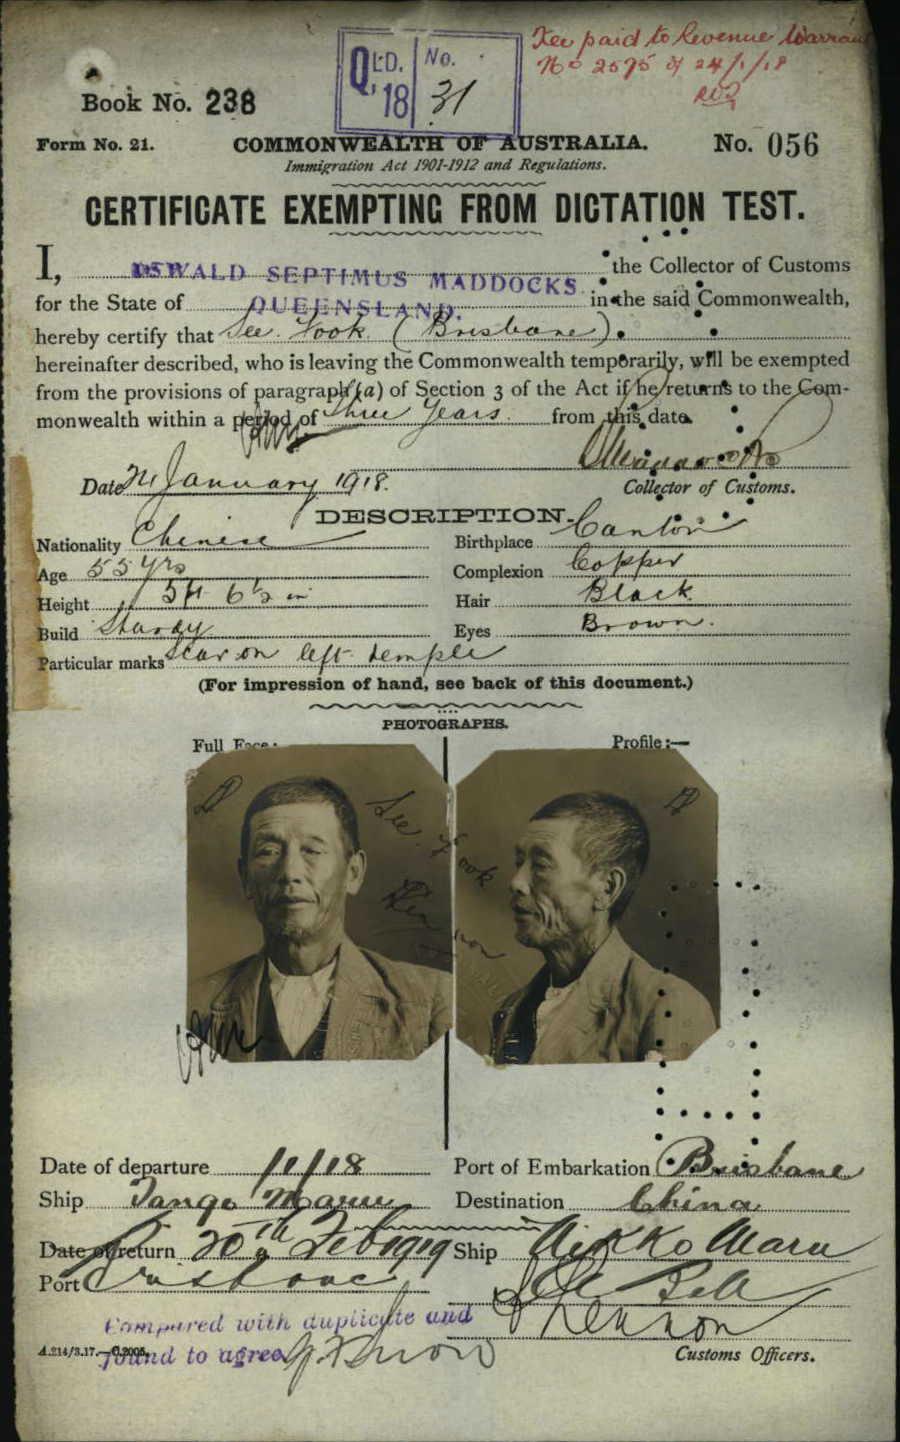 Fee paid to Revenue Warrant
No 2575 of 24/1/18
QLD. No.
18 31
Book No. 238
Form No. 21. COMMONWEALTH OF AUSTRALIA. No. 056
Immigration Act 1901-1912 and Regulations.
CERTIFICATE EXEMPTING FROM DICTATION TEST.
I, OSWALD SEPTIMUS MADDOCKS the Collector of Customs
for the State of QUEENSLAND. in the said Commonwealth,
hereby certify that See Fook (Brisbane)
hereinafter described, who is leaving the Commonwealth temporarily, will be exempted
from the provisions of paragraph (a) of Section 3 of the Act if he returns to the Com-
monwealth within a period of three years from this date.
Date January 1918.
Collector of Customs.
DESCRIPTION.
Nationality Chinese Birthplace Canton
Age 55 yrs Complexion Copper
Height 5 ft 6½ in Hair Black
Build Sturdy Eyes Brown.
Particular marks Scar on left temple
(For impression of hand, see back of this document.)
PHOTOGRAPHS.
Full Face:- Profile:—
See Fook
Date of departure /1/18 Port of Embarkation Brisbane
Ship Tango Maru Destination China
Date of return 20th Feb 1919 Ship Nikko Maru
Port Brisbane
Compared with duplicate and
found to agree
A.214/3.17.—C.2005. Customs Officers.